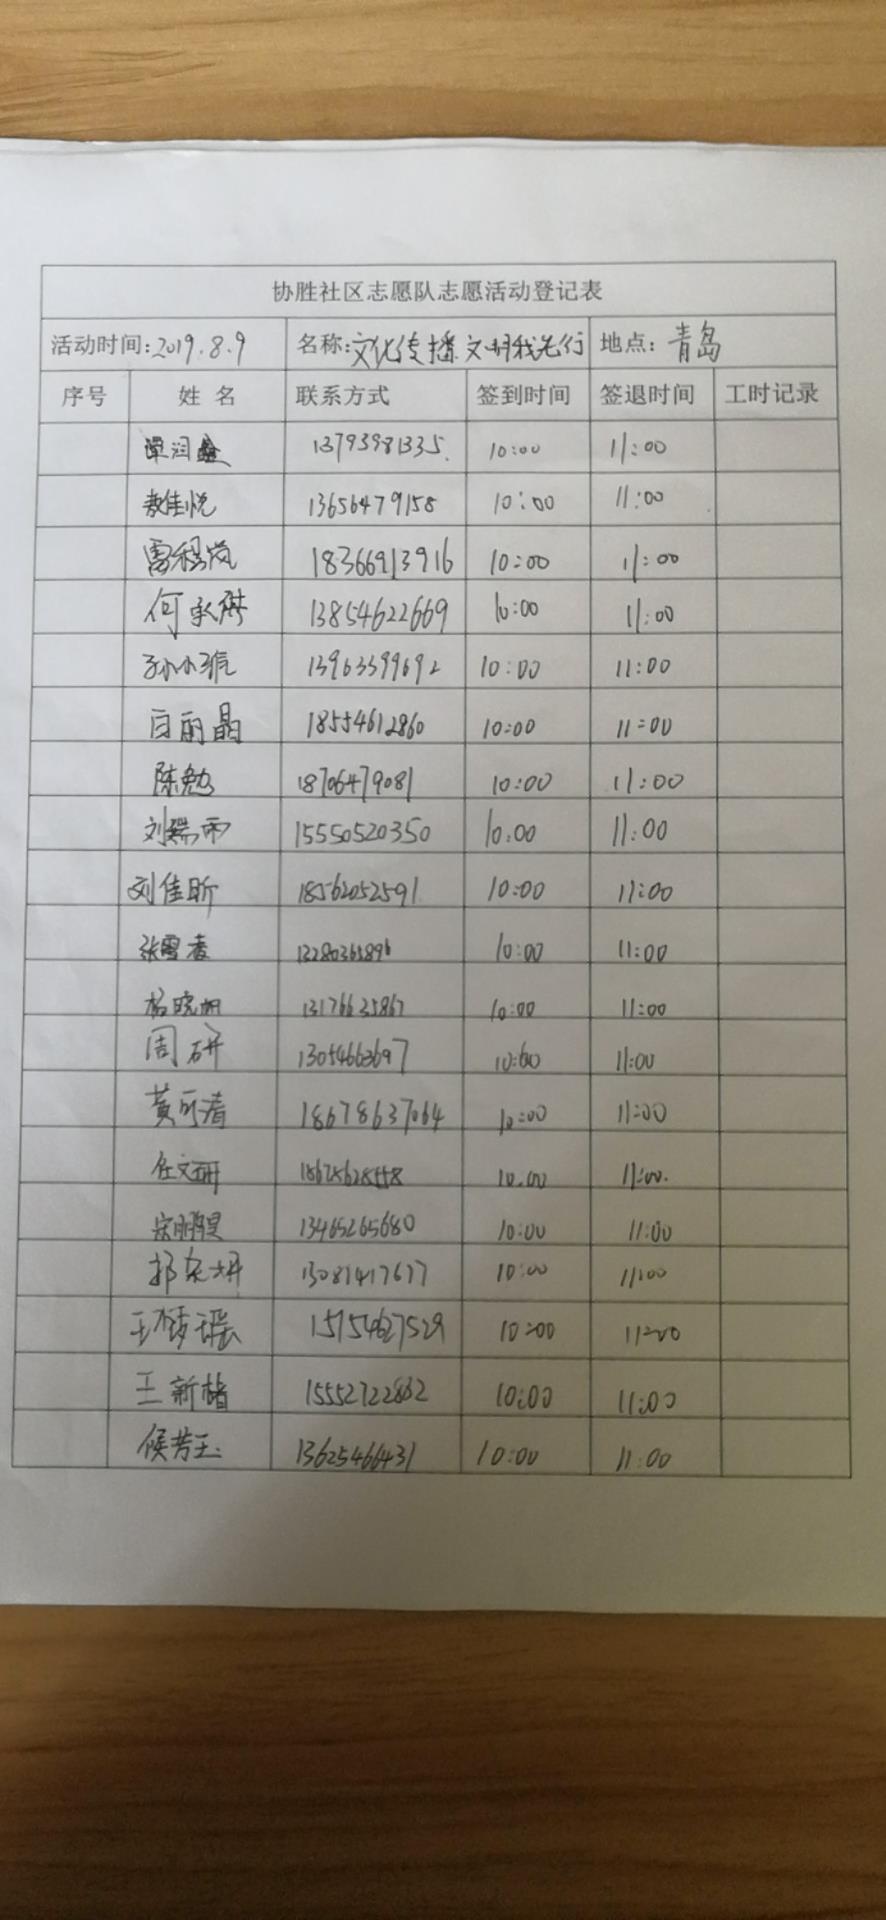 协胜社区志愿队志愿活动登记表
活动时间:2019.8.9 名称:文化传播.文明我先行 地点:青岛
序号 姓名 联系方式 签到时间 签退时间 工时记录
13793981335. 10:00 11:00
佳悦 13656479158 10:00 11:00
雷 18366913916 10:00 11:00
何承 13854622669 10:00 11:00
13963599692 10:00 11:00
白丽晶 18554612860 10:00 11:00
陈勉 18706479081 10:00 11:00
刘瑞雨 15550520350 10:00 11:00
刘佳昕 18562052591 10:00 11:00
张雪 13280365896 10:00 11:00
杨晓 13176635867 10:00 11:00
周研 13054663697 10:00 11:00
黄可清 18678637064 10:00 11:00
任文研 10:00 11:00.
宋鹏 13465265680 10:00 11:00
13081417677 10:00 11:00
王 瑶 15154627529 10:00 11:00
王新楮 15552722862 10:00 11:00
候芳玉 13625466431 10:00 11:00